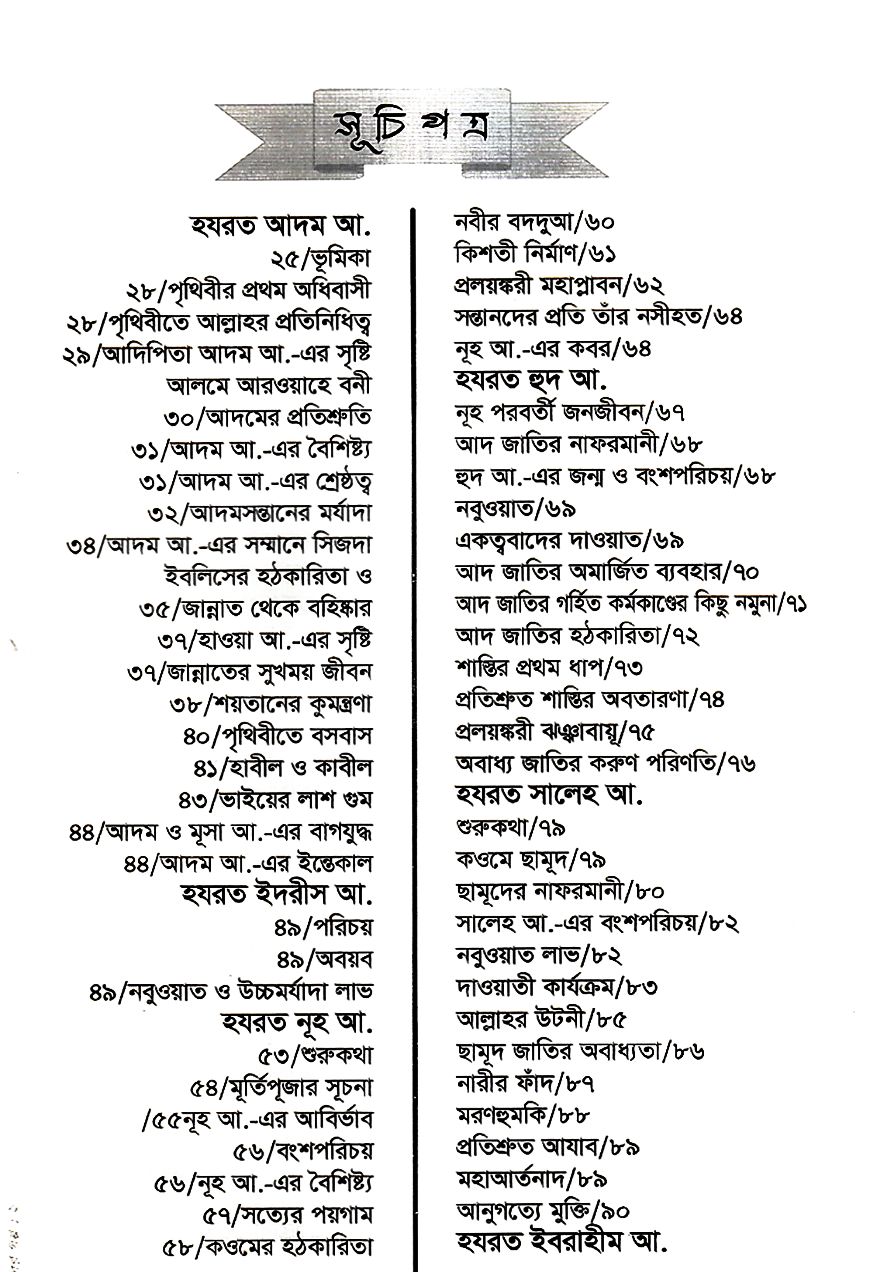 সূচিপত্র
হযরত আদম আ.
২৫/ভূমিকা
২৮/পৃথিবীর প্রথম অধিবাসী
২৮/পৃথিবীতে আল্লাহর প্রতিনিধিত্ব
২৯/আদিপিতা আদম আ.-এর সৃষ্টি
আলমে আরওয়াহে বনী
৩০/আদমের প্রতিশ্রুতি
৩১/আদম আ.-এর বৈশিষ্ট্য
৩১/আদম আ.-এর শ্রেষ্ঠত্ব
৩২/আদমসন্তানের মর্যাদা
৩৪/আদম আ.-এর সম্মানে সিজদা
ইবলিসের হঠকারিতা ও
৩৫/জান্নাত থেকে বহিষ্কার
৩৭/হাওয়া আ.-এর সৃষ্টি
৩৭/জান্নাতের সুখময় জীবন
৩৮/শয়তানের কুমন্ত্রণা
৪০/পৃথিবীতে বসবাস
৪১/হাবীল ও কাবীল
৪৩/ভাইয়ের লাশ গুম
৪৪/আদম ও মূসা আ.-এর বাগযুদ্ধ
৪৪/আদম আ.-এর ইন্তেকাল
হযরত ইদরীস আ.
৪৯/পরিচয়
৪৯/অবয়ব
৪৯/নবুওয়াত ও উচ্চমর্যাদা লাভ
হযরত নূহ আ.
৫৩/শুরুকথা
৫৪/মূর্তিপূজার সূচনা
/৫৫নূহ আ.-এর আবির্ভাব
৫৬/বংশপরিচয়
৫৬/নূহ আ.-এর বৈশিষ্ট্য
৫৭/সত্যের পয়গাম
৫৮/কওমের হঠকারিতা
নবীর বদদুআ/৬০
কিশতী নির্মাণ/৬১
প্রলয়ঙ্করী মহাপ্লাবন/৬২
সন্তানদের প্রতি তাঁর নসীহত/৬৪
নূহ আ.-এর কবর/৬৪
হযরত হুদ আ.
নূহ পরবর্তী জনজীবন/৬৭
আদ জাতির নাফরমানী/৬৮
হুদ আ.-এর জন্ম ও বংশপরিচয়/৬৮
নবুওয়াত/৬৯
একত্ববাদের দাওয়াত/৬৯
আদ জাতির অমার্জিত ব্যবহার/৭০
আদ জাতির গর্হিত কর্মকাণ্ডের কিছু নমুনা/৭১
আদ জাতির হঠকারিতা/৭২
শাস্তির প্রথম ধাপ/৭৩
প্রতিশ্রুত শাস্তির অবতারণা/৭৪
প্রলয়ঙ্করী ঝঞ্ঝাবায়ূ/৭৫
অবাধ্য জাতির করুণ পরিণতি/৭৬
হযরত সালেহ আ.
শুরুকথা/৭৯
কওমে ছামূদ/৭৯
ছামূদের নাফরমানী/৮০
সালেহ আ.-এর বংশপরিচয়/৮২
নবুওয়াত লাভ/৮২
দাওয়াতী কার্যক্রম/৮৩
আল্লাহর উটনী/৮৫
ছামূদ জাতির অবাধ্যতা/৮৬
নারীর ফাঁদ/৮৭
মরণহুমকি/৮৮
প্রতিশ্রুত আযাব/৮৯
মহাআর্তনাদ/৮৯
আনুগত্যে মুক্তি/৯০
হযরত ইবরাহীম আ.